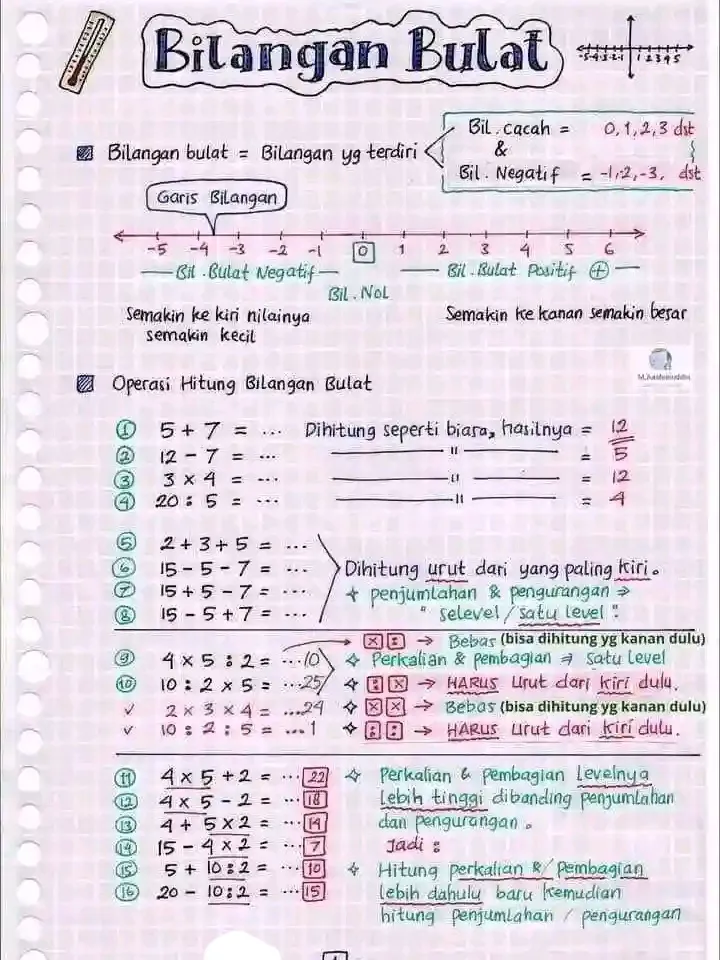 Bilangan Bulat
-5-4-3-2-1 1 2 3 4 5
Bilangan bulat = Bilangan yg terdiri
Bil. cacah = 0, 1, 2, 3 dst
&
Bil. Negatif = -1, -2, -3, dst
Garis Bilangan
-5 -4 -3 -2 -1 0 1 2 3 4 5 6
Bil. Bulat Negatif
Bil. Bulat Positif +
Bil. Nol
Semakin ke kiri nilainya
semakin kecil
Semakin ke kanan semakin besar
Operasi Hitung Bilangan Bulat
① 5 + 7 = ... Dihitung seperti biara, hasilnya = 12
② 12 - 7 = ... " = 5
③ 3 × 4 = ... " = 12
④ 20 : 5 = ... " = 4
⑤ 2 + 3 + 5 = ...
⑥ 15 - 5 - 7 = ... Dihitung urut dari yang paling kiri.
⑦ 15 + 5 - 7 = ... penjumlahan & pengurangan ⇒
⑧ 15 - 5 + 7 = ... " selevel / satu level ".
× : → Bebas (bisa dihitung yg kanan dulu)
⑨ 4 × 5 : 2 = ...10 Perkalian & pembagian ⇒ satu level
⑩ 10 : 2 × 5 = ...25 : × → HARUS urut dari kiri dulu.
✓ 2 × 3 × 4 = ...24 × × → Bebas (bisa dihitung yg kanan dulu)
✓ 10 : 2 : 5 = ...1 : : → HARUS urut dari kiri dulu.
⑪ 4 × 5 + 2 = ... 22 Perkalian & pembagian Levelnya
⑫ 4 × 5 - 2 = ... 18 Lebih tinggi dibanding penjumlahan
⑬ 4 + 5 × 2 = ... 14 dan pengurangan.
⑭ 15 - 4 × 2 = ... 7 Jadi :
⑮ 5 + 10 : 2 = ... 10 Hitung perkalian & / pembagian
⑯ 20 - 10 : 2 = ... 15 lebih dahulu baru kemudian
hitung penjumlahan / pengurangan